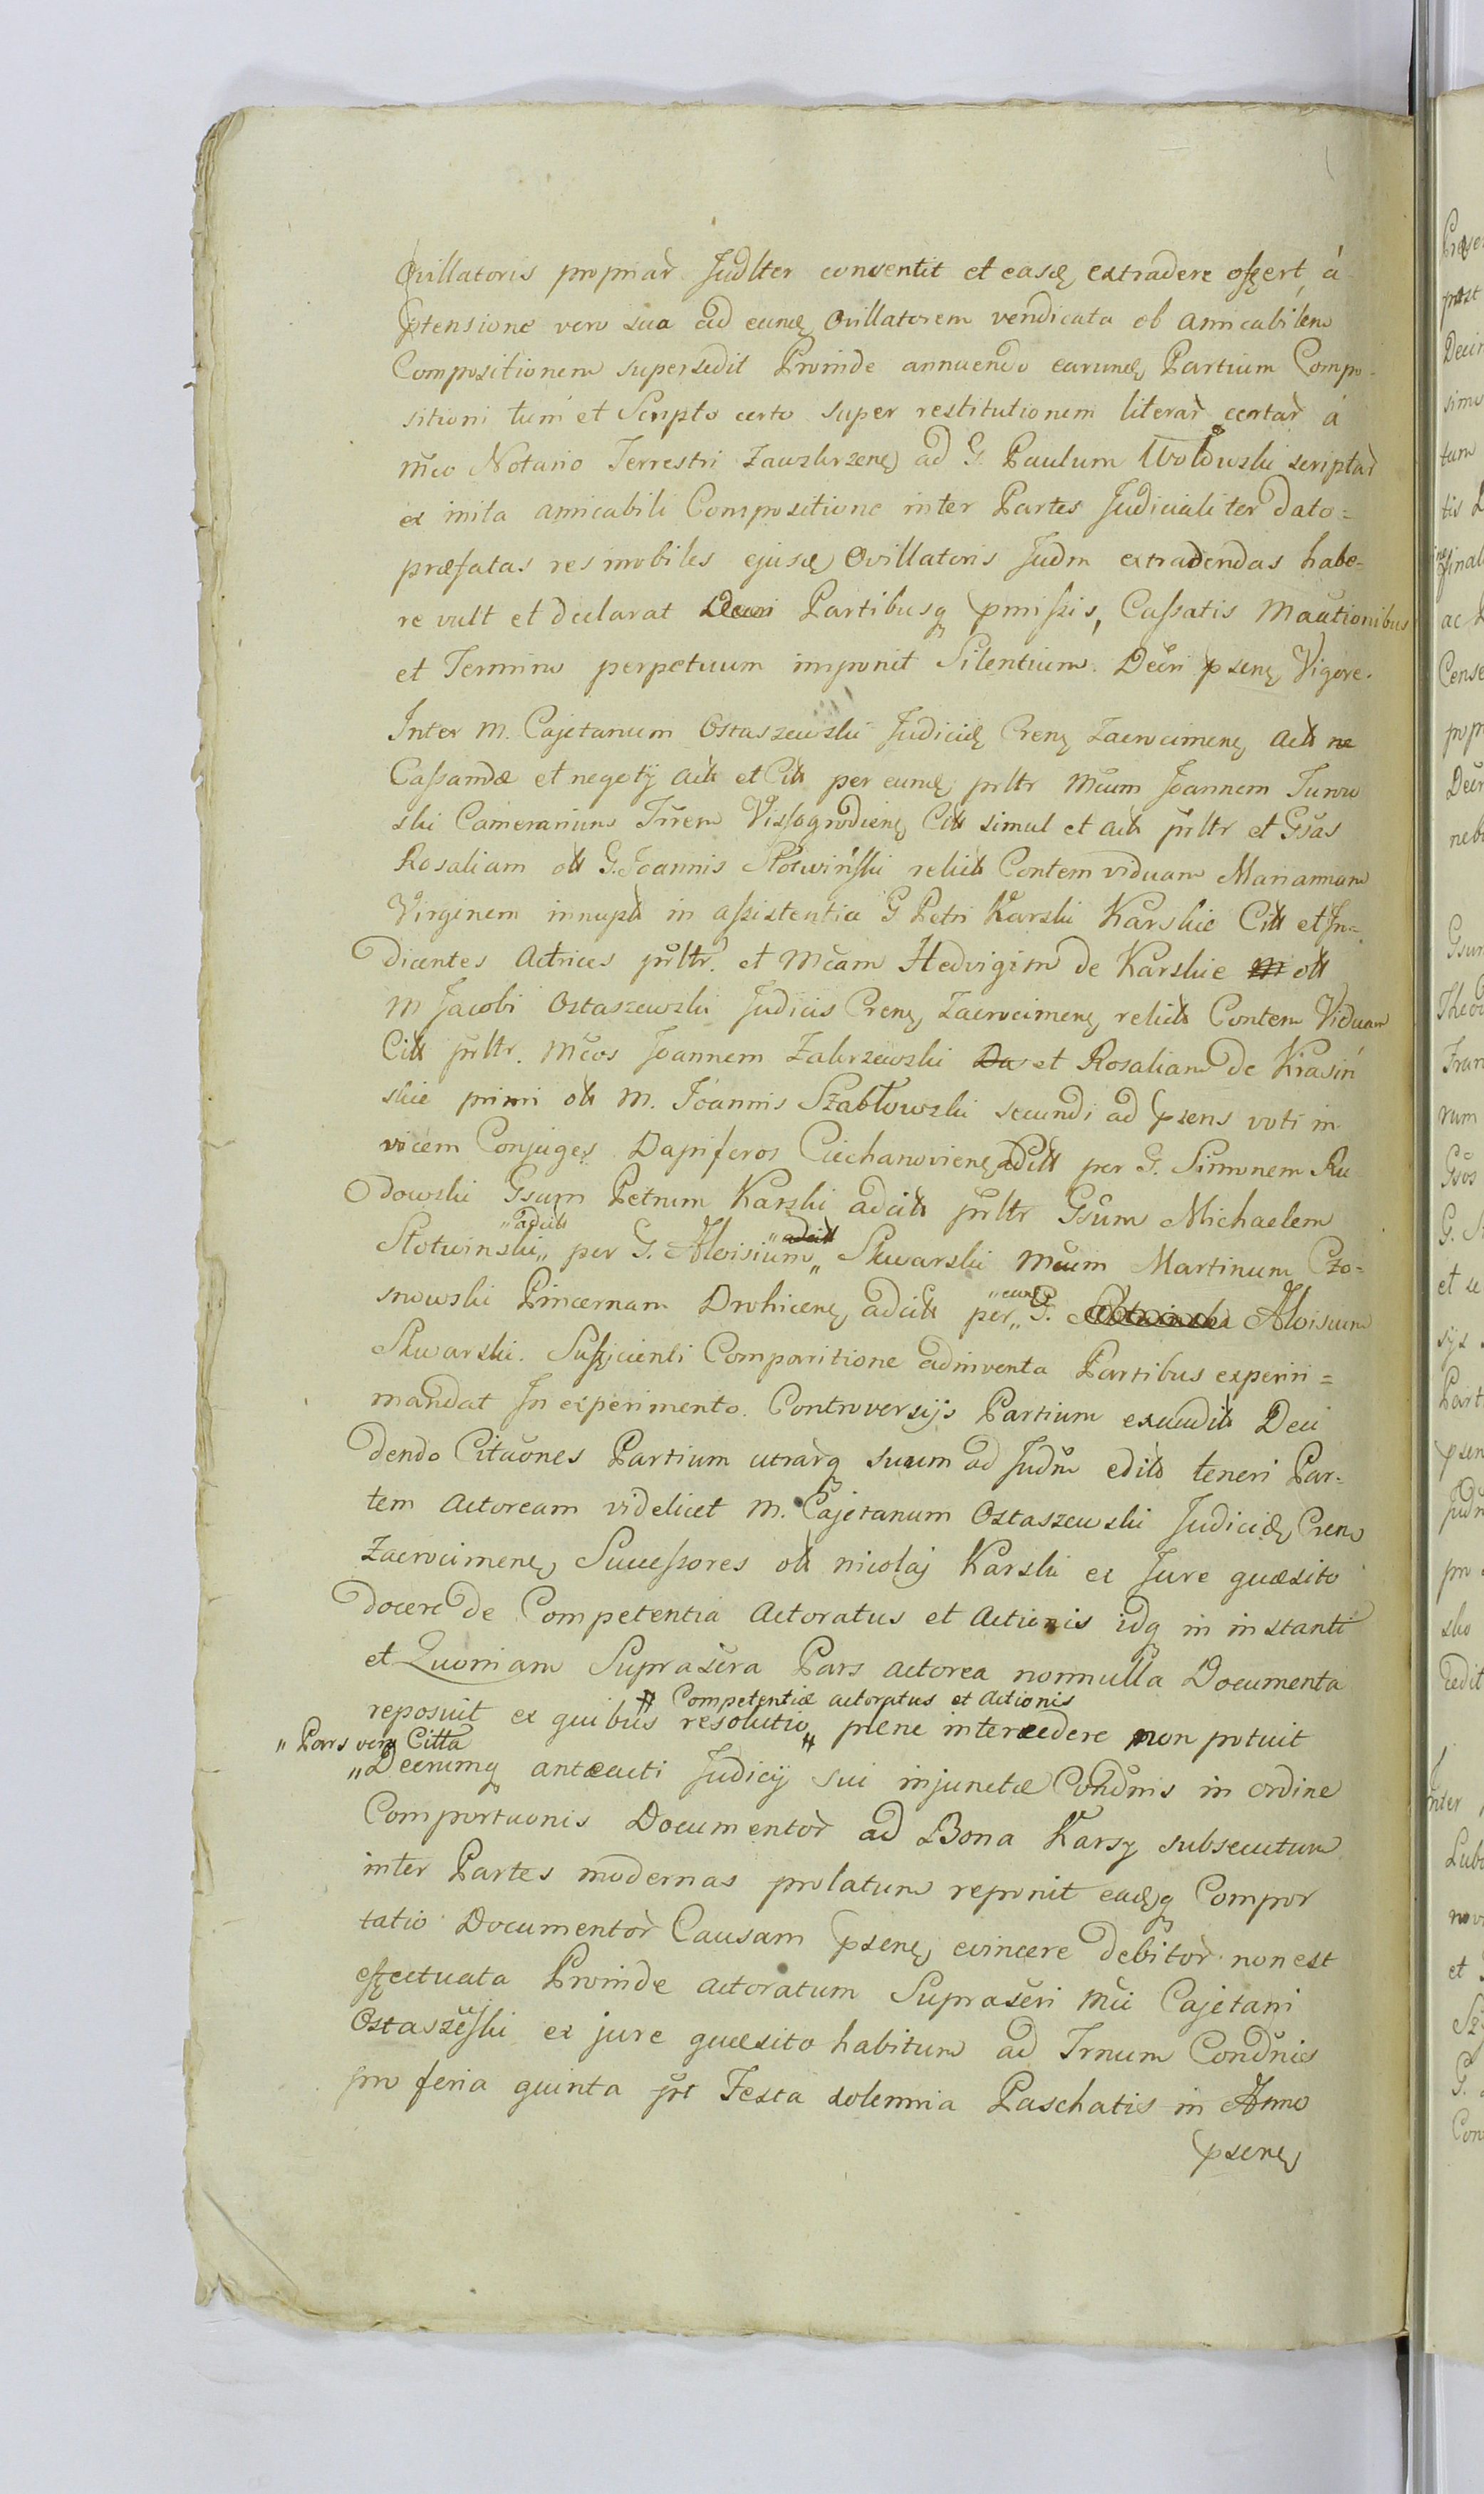 Ovillatoris propriar Judlter consentit et easdę extradere offert, á
ptensione vero sua ad eundę Ovillatorem vendicata ob amicabilem
Compositionem supersedit Proinde annuendo earundę Partium Compo-
sitioni tum et Scripto certo super restitutionem literar certar á
Mco Notario Terrestri Zawzkrzenę ad G. Paulum Wołowski scriptar
ex inita amicabili Compositione inter Partes Judicialiter dato=
præfatas res mobiles ejusdę Ovillatoris Judm extradendas habe-
re vult et declarat Partibusq pmissis, Cassatis Mautionibus
et Termino perpetuum imponit Silentium. Decri psenę Vigore.
Inter M. Cajetanum Ostaszewski Judicidę Crenę Zacrocimenę Actt ne
Cassandæ et negotij Actt et Citt per eundę prltr Mcum Joannem Turow
ski Camerarium Trrem Vissogrodienę Citt simul et Actt prltr et Gsas
Rosaliam ott G. Joannis Słotwiński relictt Contem viduam Mariannam
Virginem innuptt in assistentia G Petri Karski Karskie Citt et In=
dicentes Actrices prltr. et Mcam Hedvigim de Karskie ott
M Jacobi Ostaszewski Judicis Crenę Zacrocimenę relictt Contem Viduam
Citt prltr. Mcos Joannem Zakrzewski et Rosaliam de Krasiń
skie primi ott M. Joannis Szabłowski secundi ad psens voti in
vicem Conjuges Dapiferos Ciechanovienę adcitt per G. Simonem Ru
dowski Gsum Petrum Karski adcitt prltr Gsum Michaelem
„adcitt „adcitt
Słotwinski„ per G. Aloisium„ Skwarski Mcum Martinum Czo-
„eundę
snowski Pincernam Drohicenę adcitt per„ G. Aloisium
Skwarski. Sufficienti Comparitione adinventa Partibus experiri=
mandat In experimento. Controversijs Partium exauditt Deci
dendo Cituones Partium utrarq suum ad Judm editt teneri Par-
tem Actoream videlicet M. Cajetanum Ostaszewski Judicidę Cren
Zacrocimenę Successores ott Nicolaj Karski ex Jure quæsito
docere de Competentia Actoratus et Actionis idq in instanti
et Quoniam Suprascra Pars Actorea nonnulla Documenta
# Competentiæ actoratus et Actionis
reposuit ex quibus resolutio # plene intercedere non potuit
„Pars vero Citta
„Decrumq antecacti Judicij sui injunctæ Condnis in ordine
Comportuonis Documentor ad Bona Karsy subsecutum
inter Partes modernas prolatum reponit eadęq Compor
tatio Documentor Causam psenę evincere debitor non est
effectuata Proinde Actoratum Suprascri Mci Cajetani
Ostaszeski ex jure quæsito habitum ad Trnum Condnis
pro feria quinta pst Festa solennia Paschatis in Anno
psenę